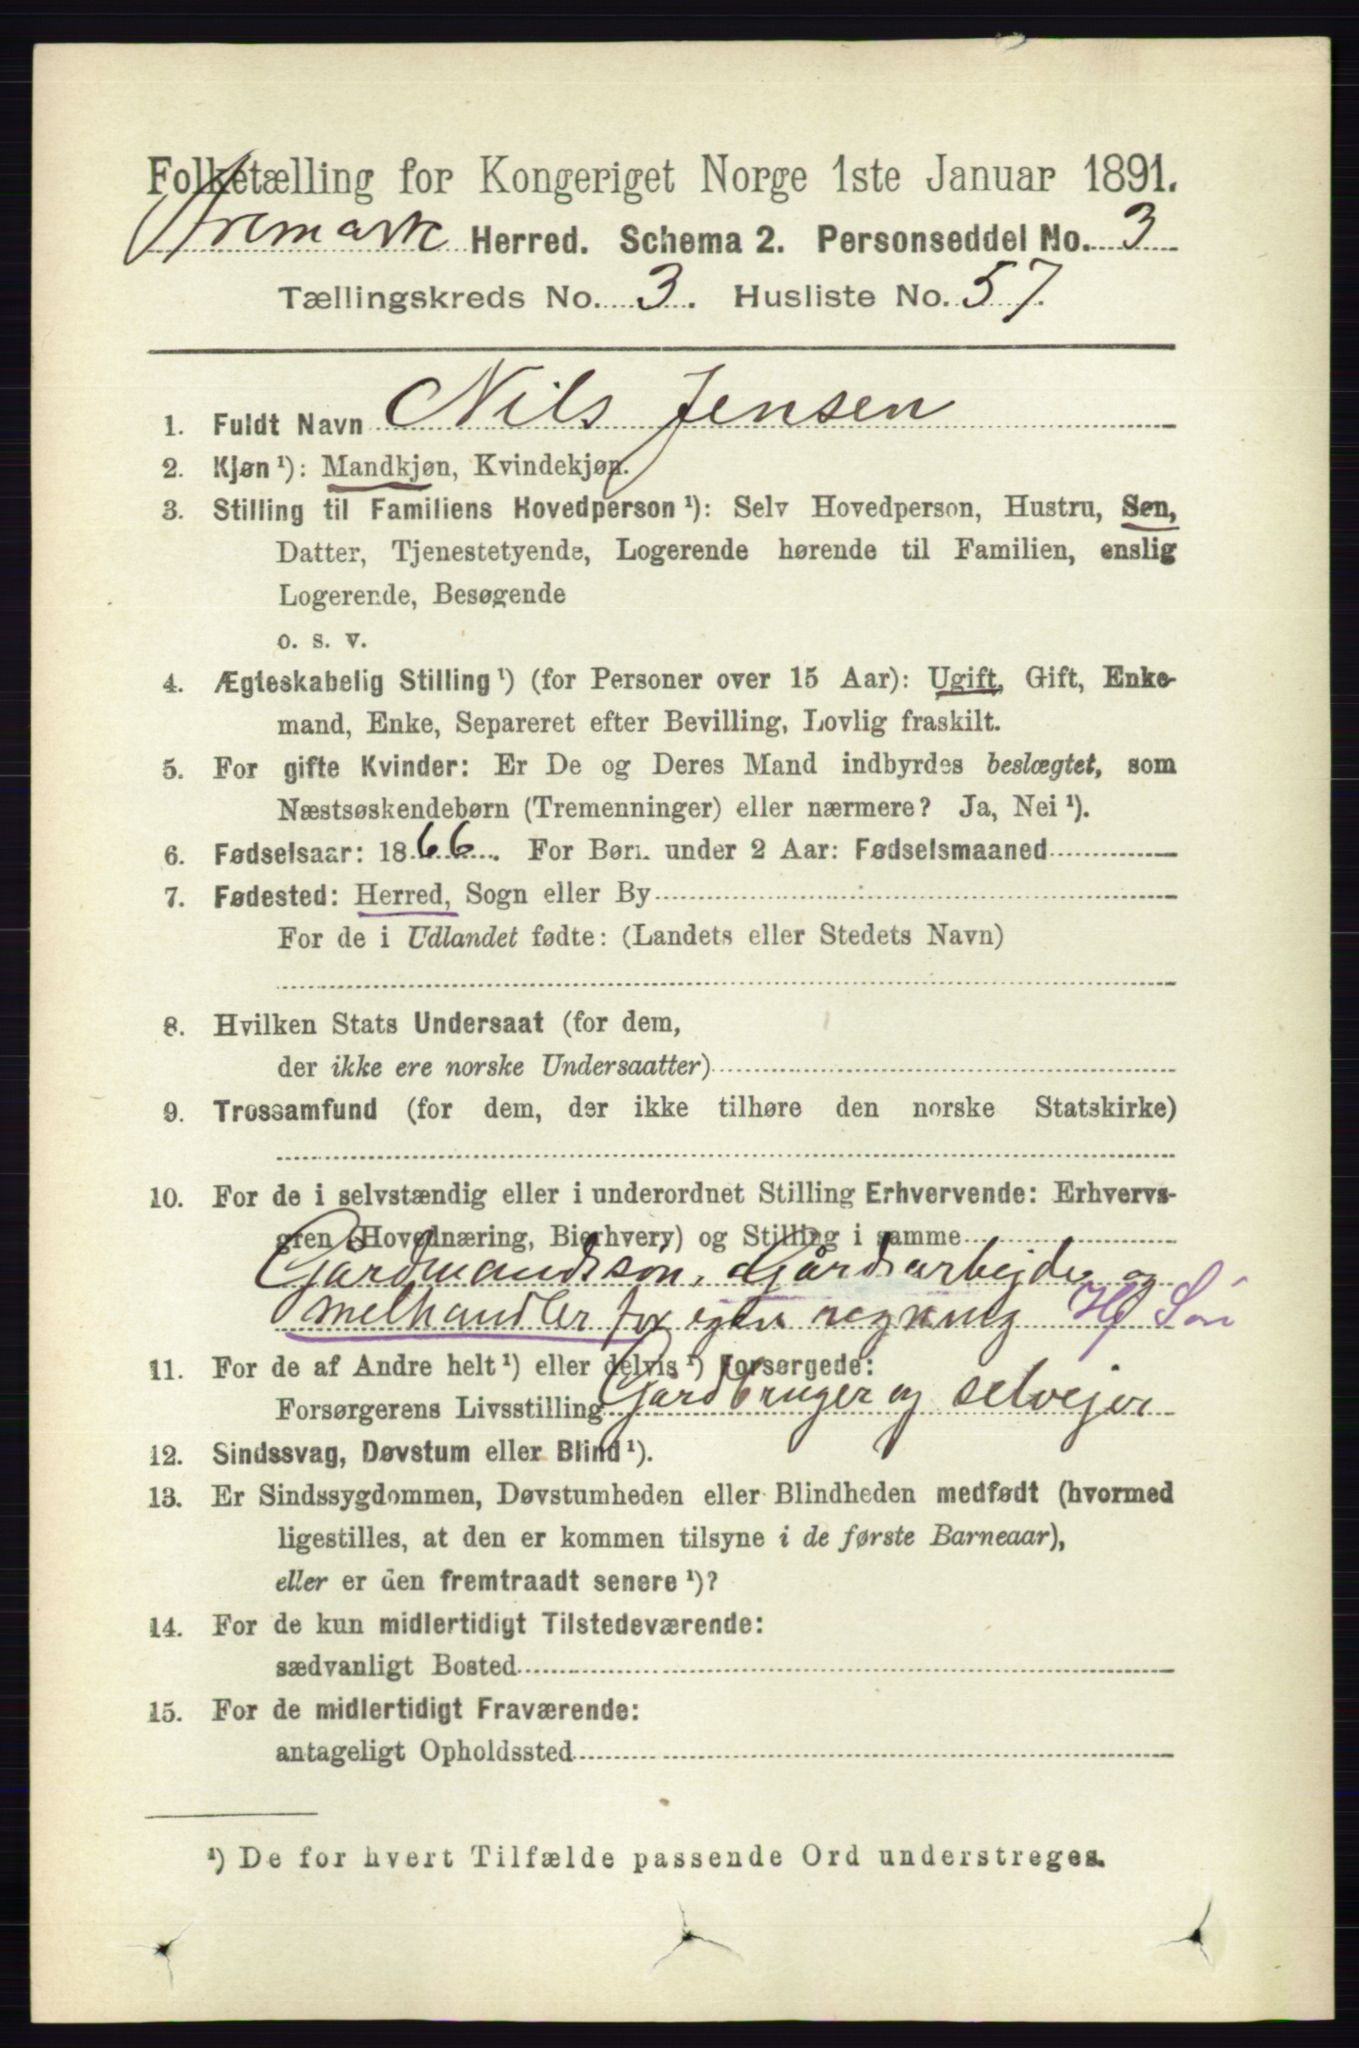 Folketælling for Kongeriget Norge 1ste Januar 1891.
Aremark Herred. Schema 2. Personseddel No. 3
Tællingskreds No. 3. Husliste No. 57.
1. Fuldt Navn Nils Jensen
2. Kjøn ¹): Mandkjøn, Kvindekjøn.
3. Stilling til Familiens Hovedperson ¹): Selv Hovedperson, Hustru, Søn,
Datter, Tjenestetyende, Logerende hørende til Familien, enslig
Logerende, Besøgende
o. s. v.
4. Ægteskabelig Stilling ¹) (for Personer over 15 Aar): Ugift, Gift, Enke-
mand, Enke, Separeret efter Bevilling, Lovlig fraskilt.
5. For gifte Kvinder: Er De og Deres Mand indbyrdes beslægtet, som
Næstsøskendebørn (Tremenninger) eller nærmere? Ja, Nei ¹).
6. Fødselsaar: 1866. For Børn under 2 Aar: Fødselsmaaned
7. Fødested: Herred, Sogn eller By
For de i Udlandet fødte: (Landets eller Stedets Navn)
8. Hvilken Stats Undersaat (for dem,
der ikke ere norske Undersaatter)
9. Trossamfund (for dem, der ikke tilhøre den norske Statskirke)
10. For de i selvstændig eller i underordnet Stilling Erhvervende: Erhvervs-
gren (Hovednæring, Bierhverv) og Stilling i samme
Gårdmandssøn, Gårdsarbejde og
melhandler for egen regning Hf Søn
11. For de af Andre helt ¹) eller delvis ¹) Forsørgede:
Forsørgerens Livsstilling Gårdbruger og selvejer
12. Sindssvag, Døvstum eller Blind ¹).
13. Er Sindssygdommen, Døvstumheden eller Blindheden medfødt (hvormed
ligestilles, at den er kommen tilsyne i de første Barneaar),
eller er den fremtraadt senere ¹)?
14. For de kun midlertidigt Tilstedeværende:
sædvanligt Bosted
15. For de midlertidigt Fraværende:
antageligt Opholdssted
¹) De for hvert Tilfælde passende Ord understreges.